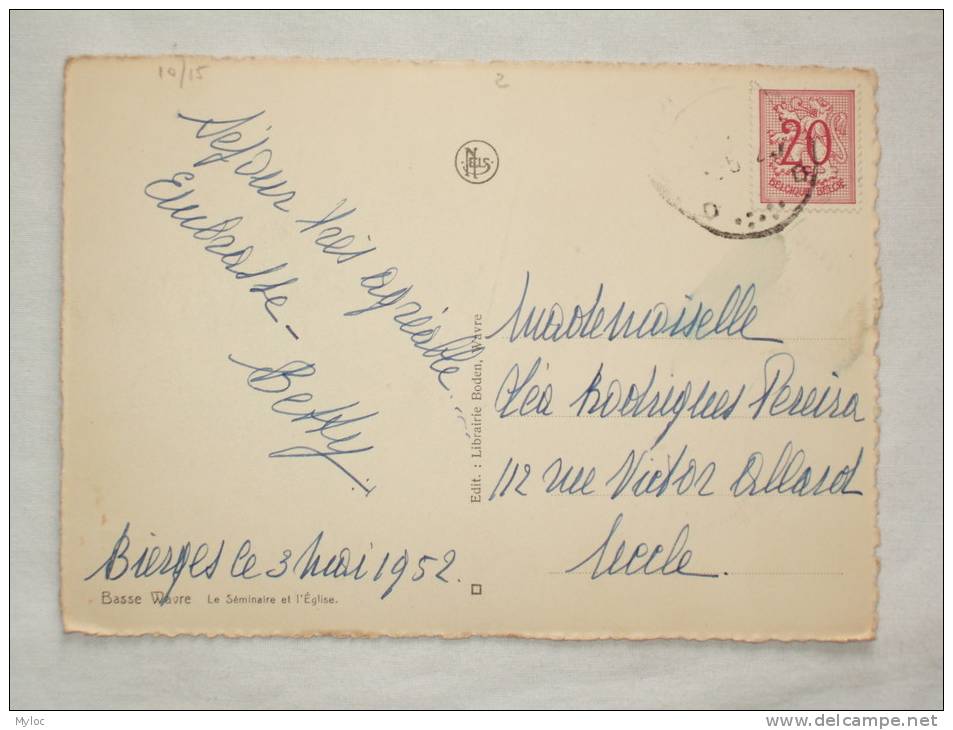 10/15
2
Séjour très agréable.
Embrasse -
Betty
Bierges le 3 mai 1952.
Basse Wavre Le Séminaire et l'Église.
NELS
Edit. : Librairie Boden, Wavre
20
BELGIQUE BELGIË
Mademoiselle
Léa Rodrigues Pereira
112 rue Victor Allard
Uccle.
Myloc
http://www.delcampe.net